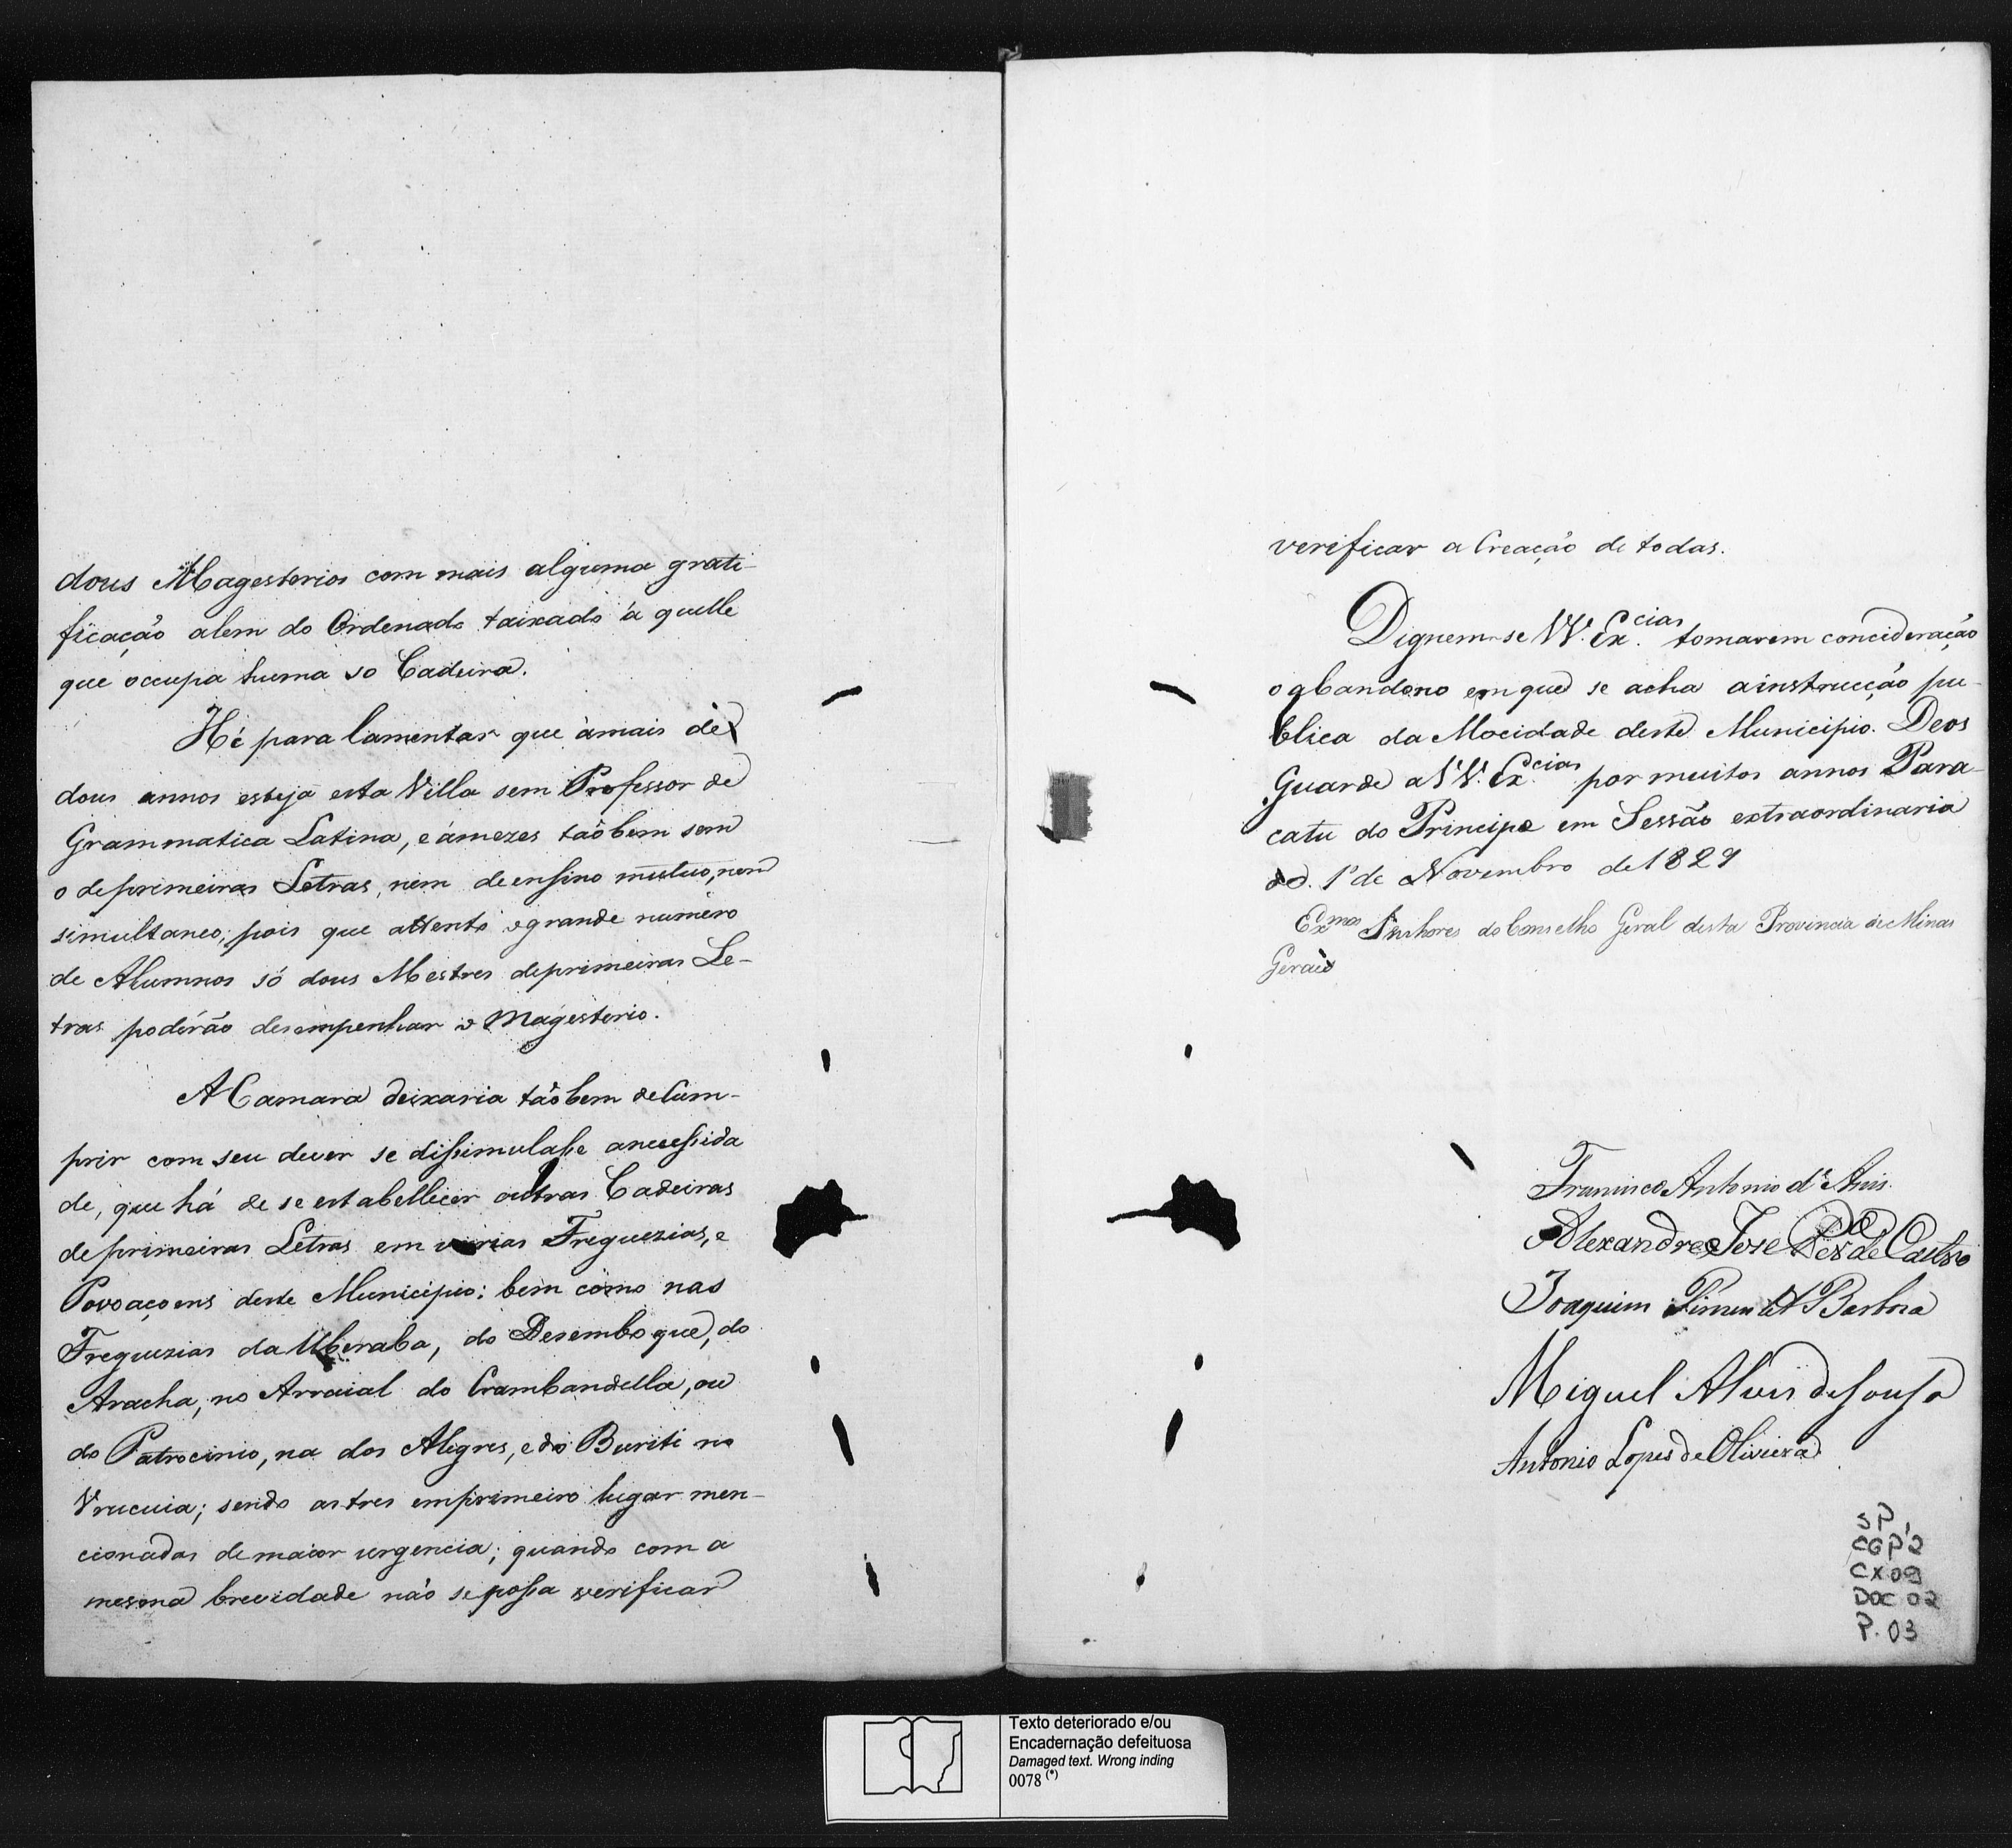 dous Magesterios com mais alguma grati-
ficação alem do Ordenado taixado á quelle
que occupa huma so Cadeira.
Hé para lamentar que àmais de
dous annos esteja esta Villa sem Professor de
Grammatica Latina, e ámezes taõbem sem
o deprimeiras Letras, nem de ensino mutuo, nem
simultaneo; pois que attento o grande numero
de Alumnos só dous Mestres deprimeiras Le-
tras poderáõ desempenhar o Magesterio.
A Camara deixaria taõbem de Cum-
prir com seu dever se dissimulasse anecessida
de, que há de se estabellecer outras Cadeiras
deprimeiras Letras em varias Freguezias, e
Povoaçoens deste Municipio; bem como nas
Freguezias da Uberaba, do Desemboque, do
Aracha, no Arraial do Crambandella, ou
do Patrocinio, na dos Alegres, e do Buriti no
Vrucuia; sendo as tres emprimeiro lugar men-
cionadas de maior urgencia; quando com a
mesma brevidade não se possa verificar
verificar a Creação de todas.
Dignem-se VV. Ex.cias tomarem concideração
o abandono em que se acha a instrucção pu-
blica da Mocidade deste Municipio. Deos
Guarde a VV. Ex.cias por muitos annos Para-
catu do Principe em Sessão extraordinaria
do 1º de Novembro de 1829
Exmos Senhores do Conselho Geral desta Provincia de Minas
Geraes
Francisco Antonio d'Assis.
Alexandre Jose de Castro
Joaquim Pimentel Barbosa
Miguel Alvis de Sousa
Antonio Lopes de Oliveira
SP,
CGP'2
CX 09
DOC 02
P. 03
Texto deteriorado e/ou
Encadernação defeituosa
Damaged text. Wrong inding
0078 (*)